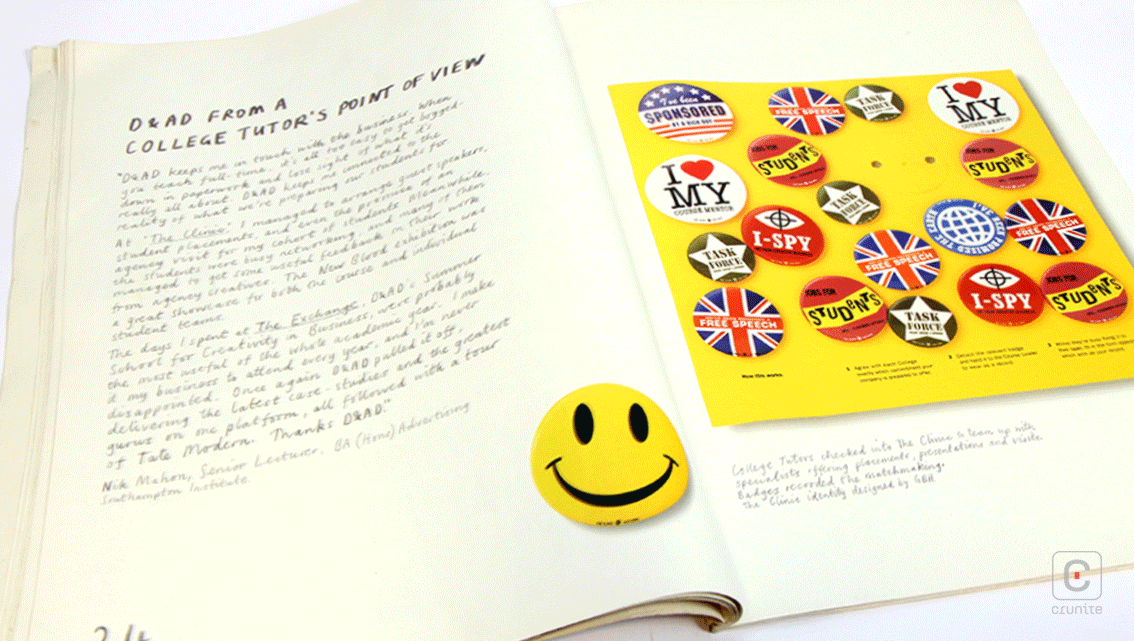 D&AD FROM A
COLLEGE TUTOR'S POINT OF VIEW
"D&AD keeps me in touch with the business. When
you teach full-time, it's all too easy to get bogged
down in paperwork and lose sight of what it's
really all about. D&AD keeps me connected to the
reality of what we're preparing our students for.
At 'The Clinic' I managed to arrange guest speakers,
student placements and even the promise of an
agency visit for my cohort of students. Meanwhile,
the students were busy networking, and many of them
managed to get some useful feedback on their work
from agency creatives. The New Blood exhibition was
a great showcase for both the course and individual
student teams.
The days I spent at The Exchange, D&AD's Summer
School for Creativity in Business, were probably
the most useful of the whole academic year. I make
it my business to attend every year, and I'm never
disappointed. Once again D&AD pulled it off,
delivering the latest case-studies and the greatest
gurus on one platform, all followed with a tour
of Tate Modern. Thanks D&AD."
Nik Mahon, Senior Lecturer. BA (Hons) Advertising
Southampton Institute.
24
I've been
SPONSORED
FREE SPEECH
TASK
FORCE
I
MY
COURSE MENTOR
JOBS FOR
STUDENTS
JOBS FOR
STUDENTS
I
MY
COURSE MENTOR
TASK
FORCE
I-SPY
TASK
FORCE
FREE SPEECH
FREE SPEECH
FREE SPEECH
JOBS FOR
STUDENTS
TASK
FORCE
I-SPY
JOBS FOR
STUDENTS
How this works
1 Agree with each College
exactly which commitment your
company is prepared to offer.
2 Detach the relevant badge
and hand it to the Course Leader
to wear as a record.
College Tutors checked into The Clinic to team up with
specialists offering placements, presentations and visits.
Badges recorded the matchmaking.
The Clinic identity designed by GBH.
crunite